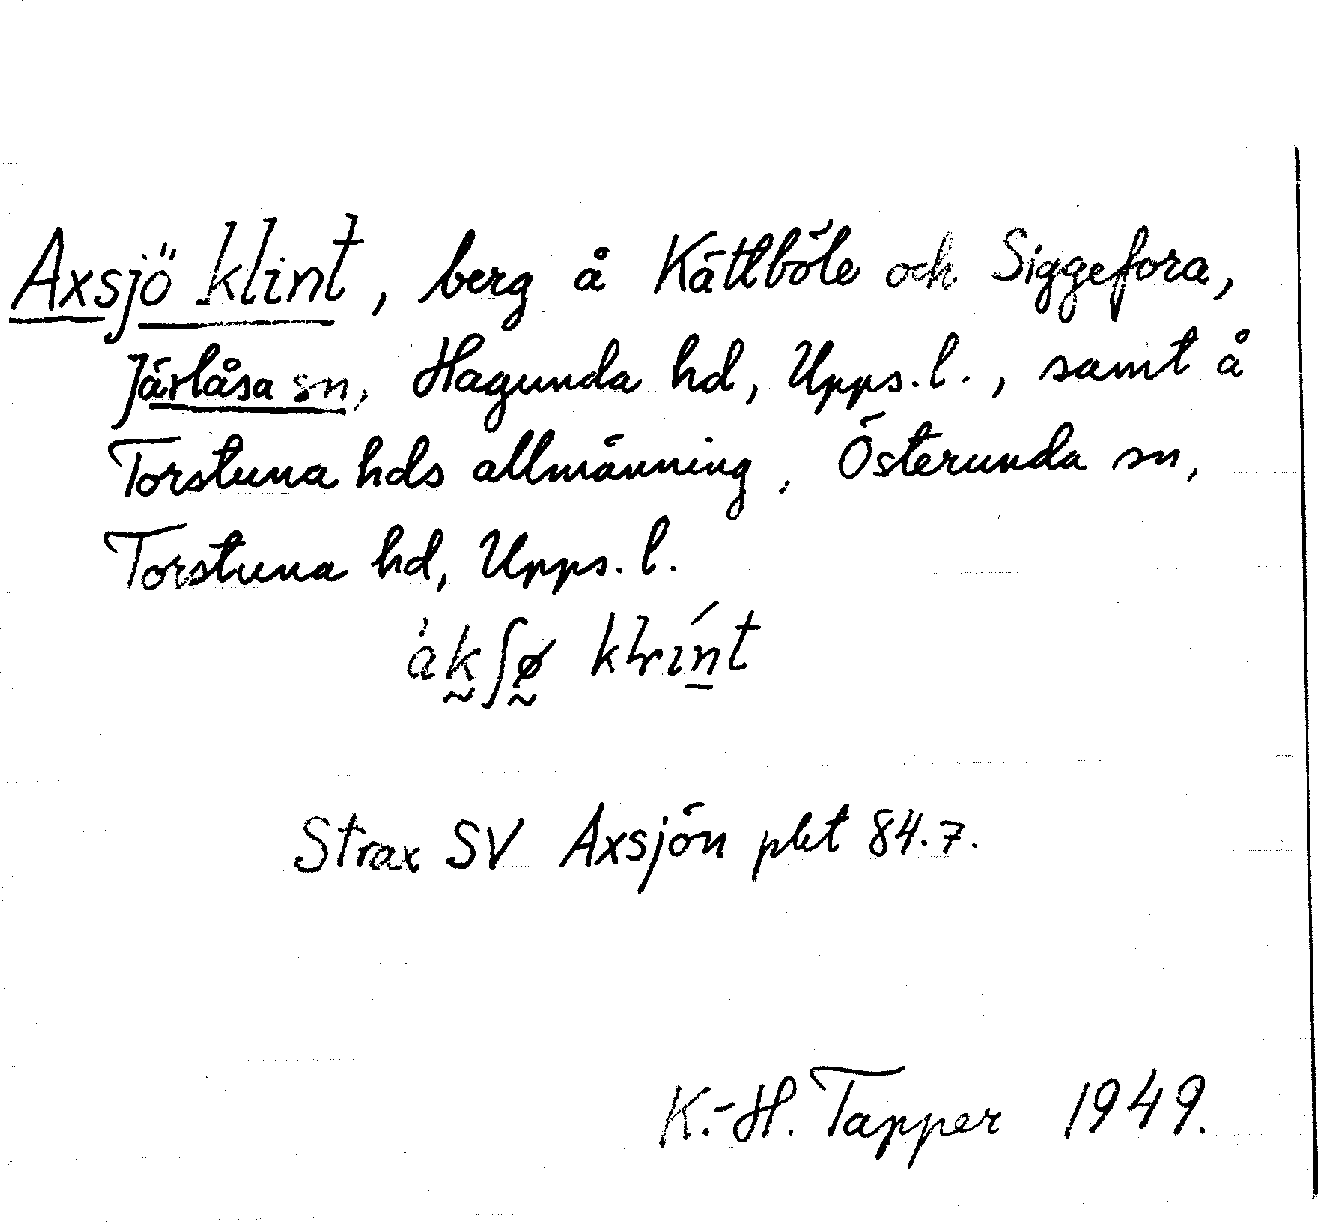 Axsjö klint, berg å Kättlböle och Siggefora,
Järlåsa sn, Hagunda hd, Upps. l., samt å
Torstuna hds allmänning, Österunda sn,
Torstuna hd, Upps. l.
Strax SV Axsjön pkt 84.7.
K.-H. Tapper 1949.